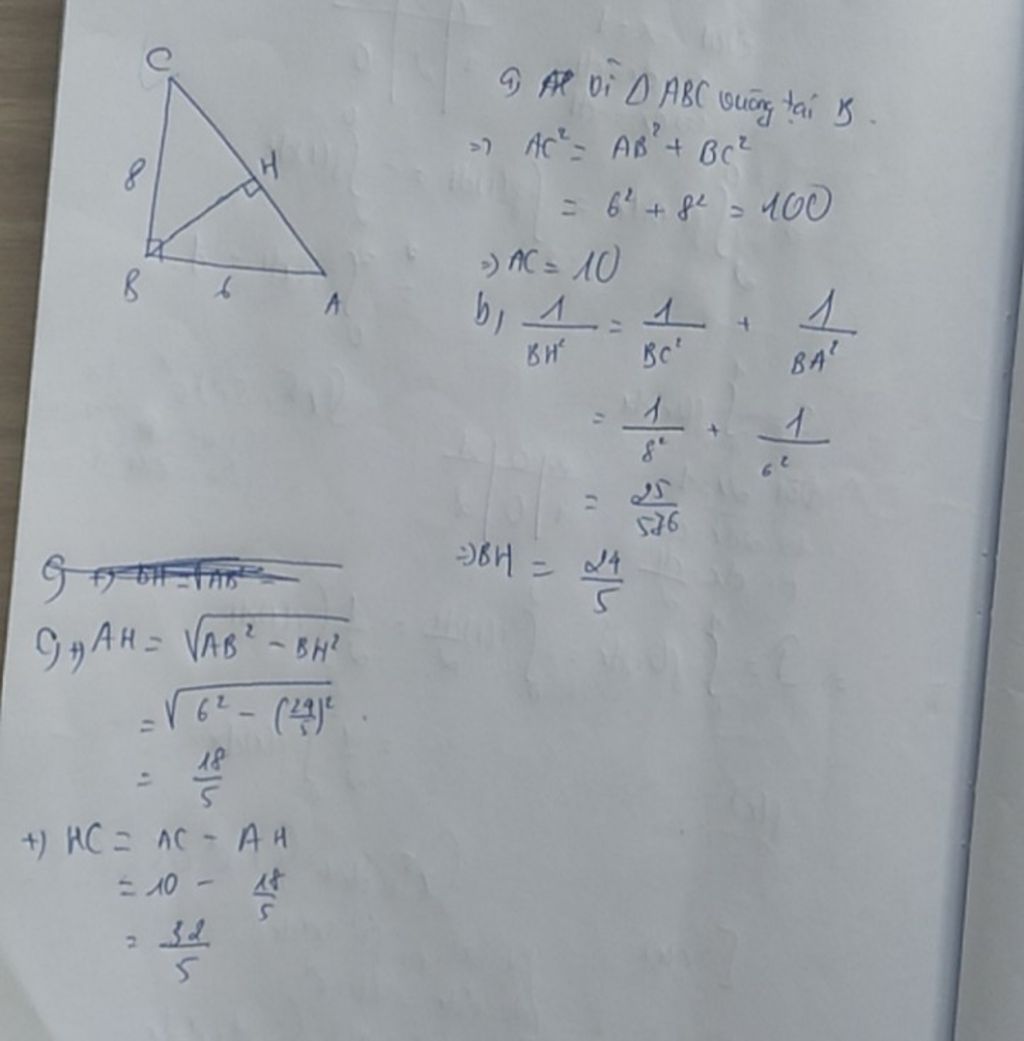 C
8
H
B
6
A
a) Vì Δ ABC vuông tại B.
=> AC² = AB² + BC²
= 6² + 8² = 100
=> AC = 10
b, 1/BH² = 1/BC² + 1/BA²
= 1/8² + 1/6²
= 25/576
=> BH = 24/5
c, +) AH = √(AB² - BH²)
= √(6² - (24/5)²)
= 18/5
+) HC = AC - AH
= 10 - 18/5
= 32/5